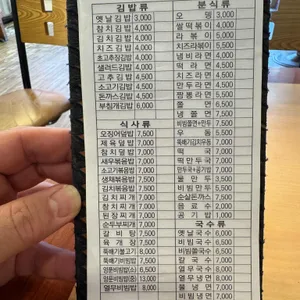 김밥류
옛날김밥 3,000
참치김밥 4,000
김치김밥 4,000
치즈김밥 4,000
초고추장김밥 4,000
샐러드김밥 4,000
고추김밥 4,500
소고기김밥 4,500
돈까스김밥 4,500
부침개김밥 6,000
식사류
오징어덮밥 7,500
제육덮밥 7,500
참치덮밥 7,500
새우볶음밥 7,500
소고기볶음밥 7,500
생채볶음밥 7,500
김치볶음밥 7,500
김치찌개 7,500
참치찌개 7,500
된장찌개 7,500
순두부찌개 7,500
갈비탕 7,500
육개장 7,500
뚝배기불고기 8,000
뚝배기비빔밥 7,500
양푼비빔밥(소) 6,500
양푼비빔밥(중) 13,000
열무비빔밥 8,000
분식류
오뎅 3,000
쌀떡볶이 4,000
라볶이 5,000
치즈라볶이 5,500
냄비라면 4,000
떡라면 4,500
치즈라면 4,500
만두라면 4,500
짬뽕라면 5,500
쫄면 6,500
냉쫄면 7,500
비빔쫄면+만두 7,500
우동 5,500
뚝배기김치우동
떡국 7,000
떡만두국 7,000
만두국+공기밥 7,000
물만두 5,500
비빔만두 5,500
순살돈까스 7,500
음료수 2,000
공기밥 1,000
국수류
옛날국수 6,000
비빔국수 6,500
비빔쫄국수 6,500
칼국수 7,000
열무국수 8,000
열무냉면 8,000
물냉면 7,000
비빔냉면 7,000